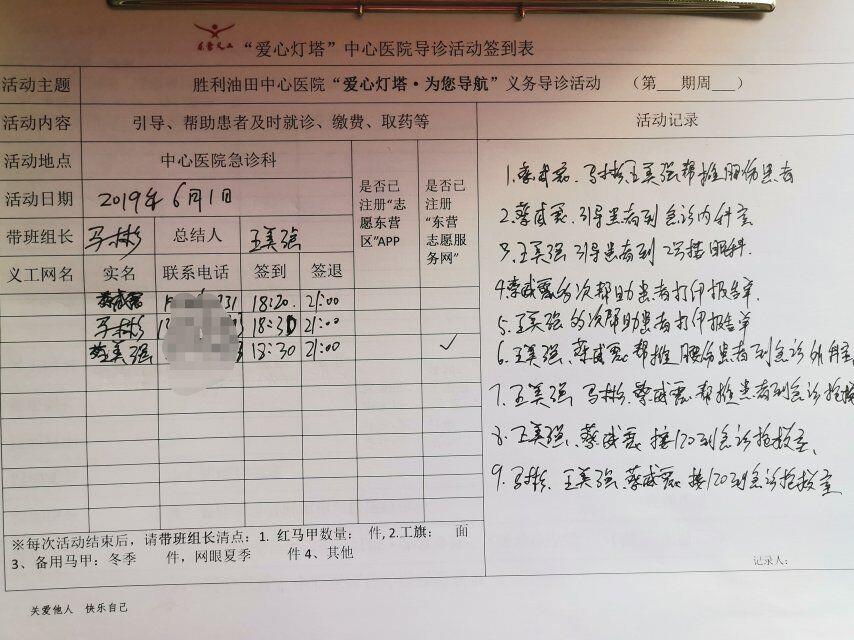 东营义工
“爱心灯塔”中心医院导诊活动签到表
活动主题 胜利油田中心医院“爱心灯塔·为您导航”义务导诊活动 （第___期周___）
活动内容 引导、帮助患者及时就诊、缴费、取药等
活动记录
活动地点 中心医院急诊科
是否已注册“志愿东营区”APP
是否已注册“东营志愿服务网”
活动日期 2019年6月1日
带班组长 马彬 总结人 王美强
义工网名 实名 联系电话 签到 签退
蔡威磊 18:20 21:00
马彬 18:30 21:00
王美强 18:30 21:00 ✓
1.蔡威磊、马彬、王美强帮推腿伤患者
2.蔡威磊 引导患者到急诊内科室
3.王美强 引导患者到2号楼眼科.
4.蔡威磊多次帮助患者打印报告单.
5.王美强多次帮助患者打印报告单
6.王美强、蔡威磊帮推腰伤患者到急诊外科室
7.王美强 马彬、蔡威磊帮推患者到急诊抢救
8.王美强、蔡威磊 接120到急诊抢救室.
9.马彬、王美强、蔡威磊 接120到急诊抢救室
※每次活动结束后，请带班组长清点：1. 红马甲数量： 件, 2.工旗： 面
3、备用马甲：冬季 件，网眼夏季 件 4、其他
记录人：
关爱他人 快乐自己